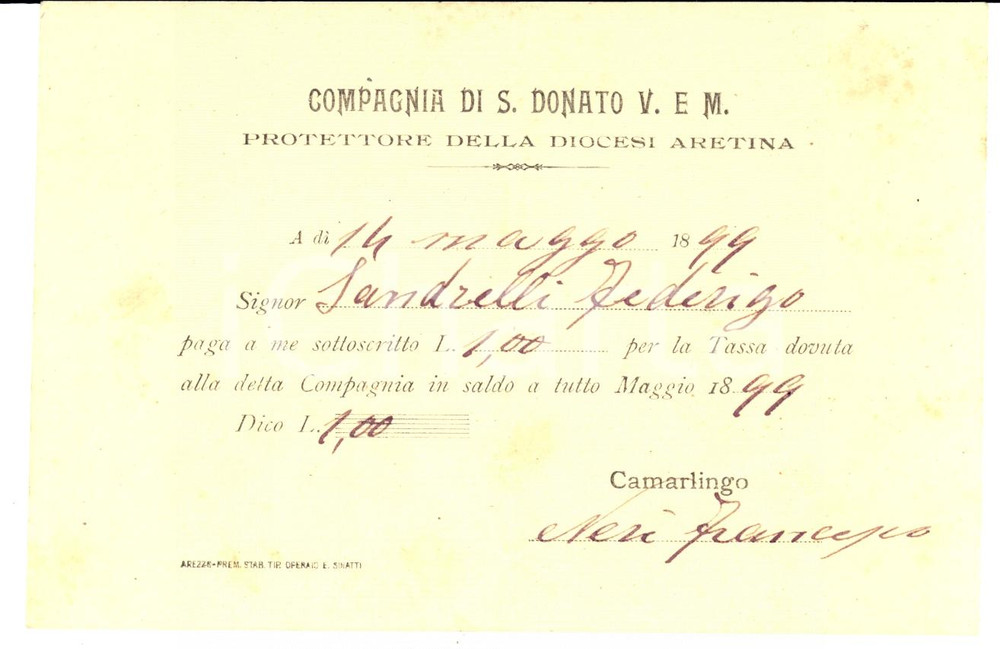 COMPAGNIA DI S. DONATO V. E M.
PROTETTORE DELLA DIOCESI ARETINA
A dì 14 maggo 1899
Signor Sandrelli Federigo
paga a me sottoscritto L. 1,00 per la Tassa dovuta
alla detta Compagnia in saldo a tutto Maggio 1899
Dico L. 1,00
Camarlingo
Neri Francesco
AREZZO-PREM. STAB. TIP. OPERAIO E. SINATTI